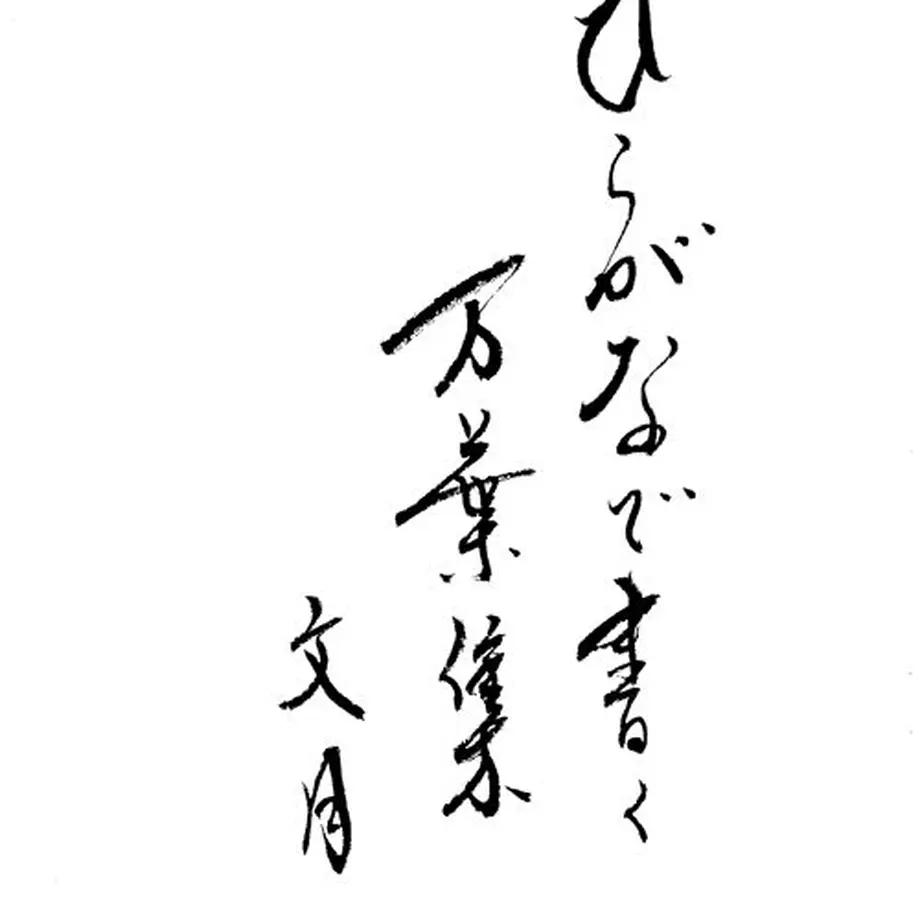 ひらがなで書く
万葉集
文月